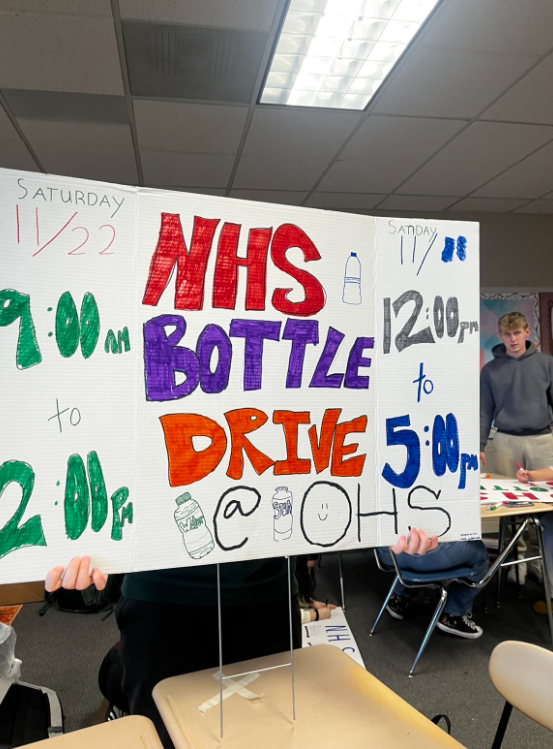 SATURDAY
11/22
9:00 AM
to
2:00 PM
NHS
BOTTLE
DRIVE
@ OHS
Water
11/
12:00pm
to
5:00pm
NHS